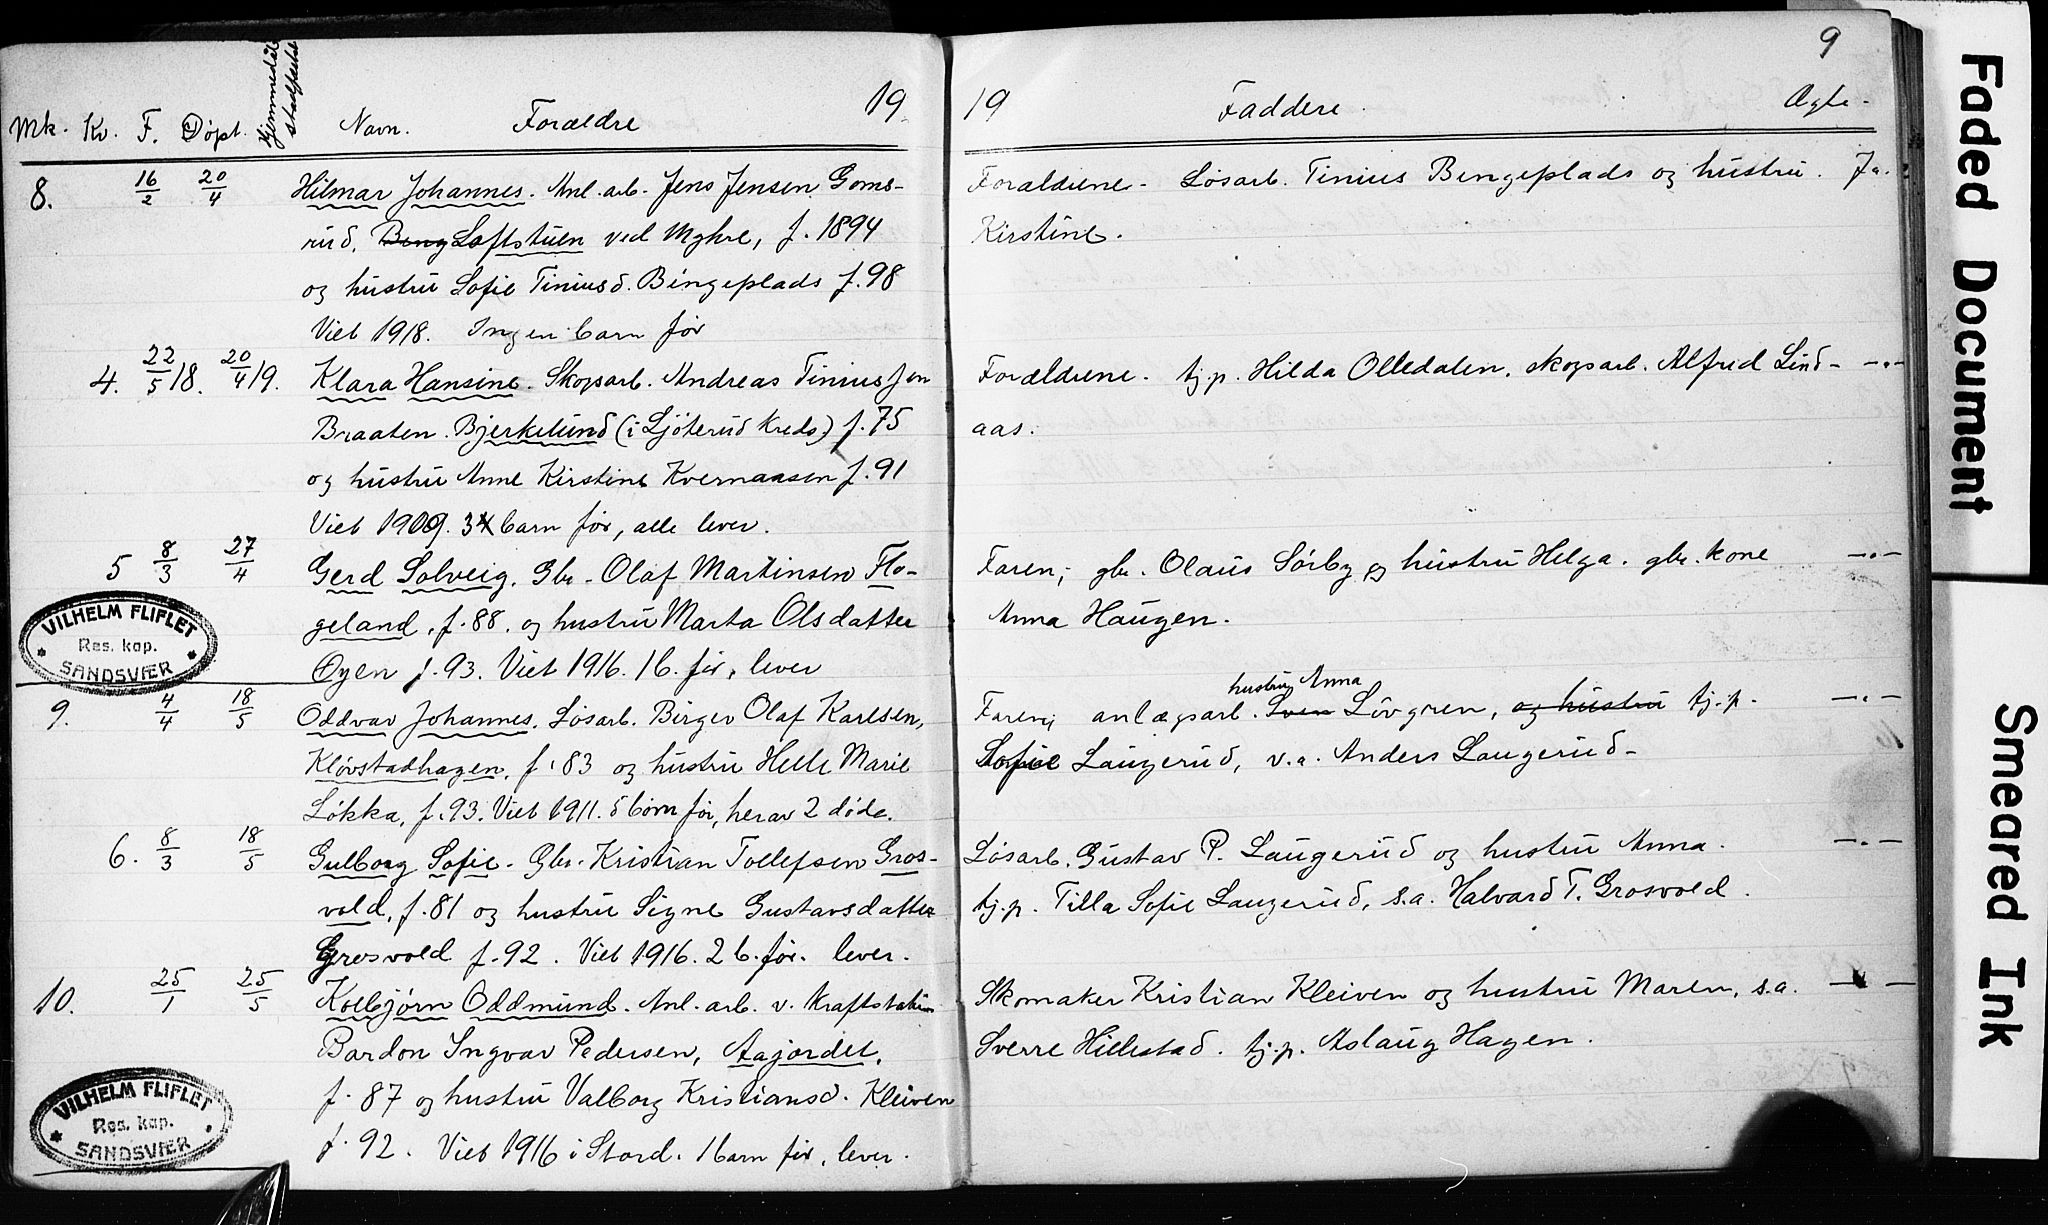 9
19 19
Mk. Kv. F. Døpt. Hjemmedåb stadfæstet Navn. Forældre Faddere. Ægte.
8. 16/2 20/4 Hilmar Johannes. Anl. arb. Jens Jensen Goms-
rud, Beng Loftstuen ved Myhre, f. 1894
og hustru Sofie Tiniusd. Bingeplads f. 98
Viet 1918. Ingen barn før
Forældrene. Løsarb. Tinius Bingeplads og hustru. Ja.
Kirstine.
4. 22/5 18. 20/4 19. Klara Hansine. Skogsarb. Andreas Tinius Jen
Braaten. Bjerkelund (i Ljøterud Kreds.) f. 75
og hustru Anne Kirstine Kvernaasen f. 91
Viet 1909. 34 barn før, alle lever.
Forældrene. tj.p. Hilda Olledalen, skogsarb. Alfred Lind- —"—
aas.
5 8/3 27/4 Gerd Solveig. Gbr. Olaf Martinsen Flo-
geland, f. 88. og hustru Marta Olsdatter
Øyen f. 93. Viet 1916. 1 b. før, lever
Faren; gbr. Olaus Sørby og hustru Helga. gbr. kone —"—
Anna Haugen.
VILHELM FLIFLET
Res. kap.
SANDSVÆR
9. 4/4 18/5 Oddvar Johannes. Løsarb. Birger Olaf Karlsen,
Kløvstadhagen, f. 83 og hustru Helle Marie
Løkka, f. 93. Viet 1911. 5 børn før, herav 2 døde.
hustru Anna
Faren; anlægsarb. Sven Lövgren, og hustru tj.p. —"—
Sofie Laugerud, v.a. Anders Laugerud-
6. 8/3 18/5 Gulborg Sofie. Gbr. Kristian Tollefsen Gros-
vold, f. 81 og hustru Signe Gustavsdatter
Grosvold f. 92. Viet 1916. 2 b. før. lever.
Løsarb. Gustav P. Laugerud og hustru Anna. —"—
tj.p. Tilla Sofie Laugerud, s.a. Halvard T. Grosvold.
10. 25/1 25/5 Kolbjørn Oddmund. Anl. arb. v. Kraftstation
Bardon Ingvar Pedersen, Aajordet,
f. 87 og hustru Valborg Kristiansd. Kleiven
f. 92. Viet 1916 i Stord. 1 barn før, lever.
Skomaker Kristian Kleiven og hustru Maren, s.a. —"—
Sverre Hillestad. tj.p. Aslaug Hagen.
VILHELM FLIFLET
Res. kap.
SANDSVÆR
Faded Document
Smeared Ink